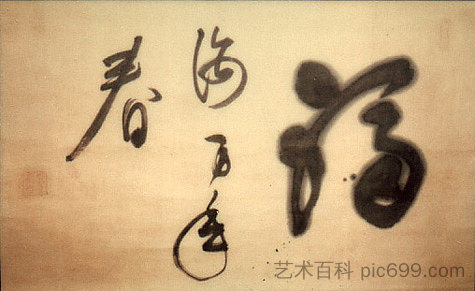 福
海万年
春
艺术百科 pic699.com